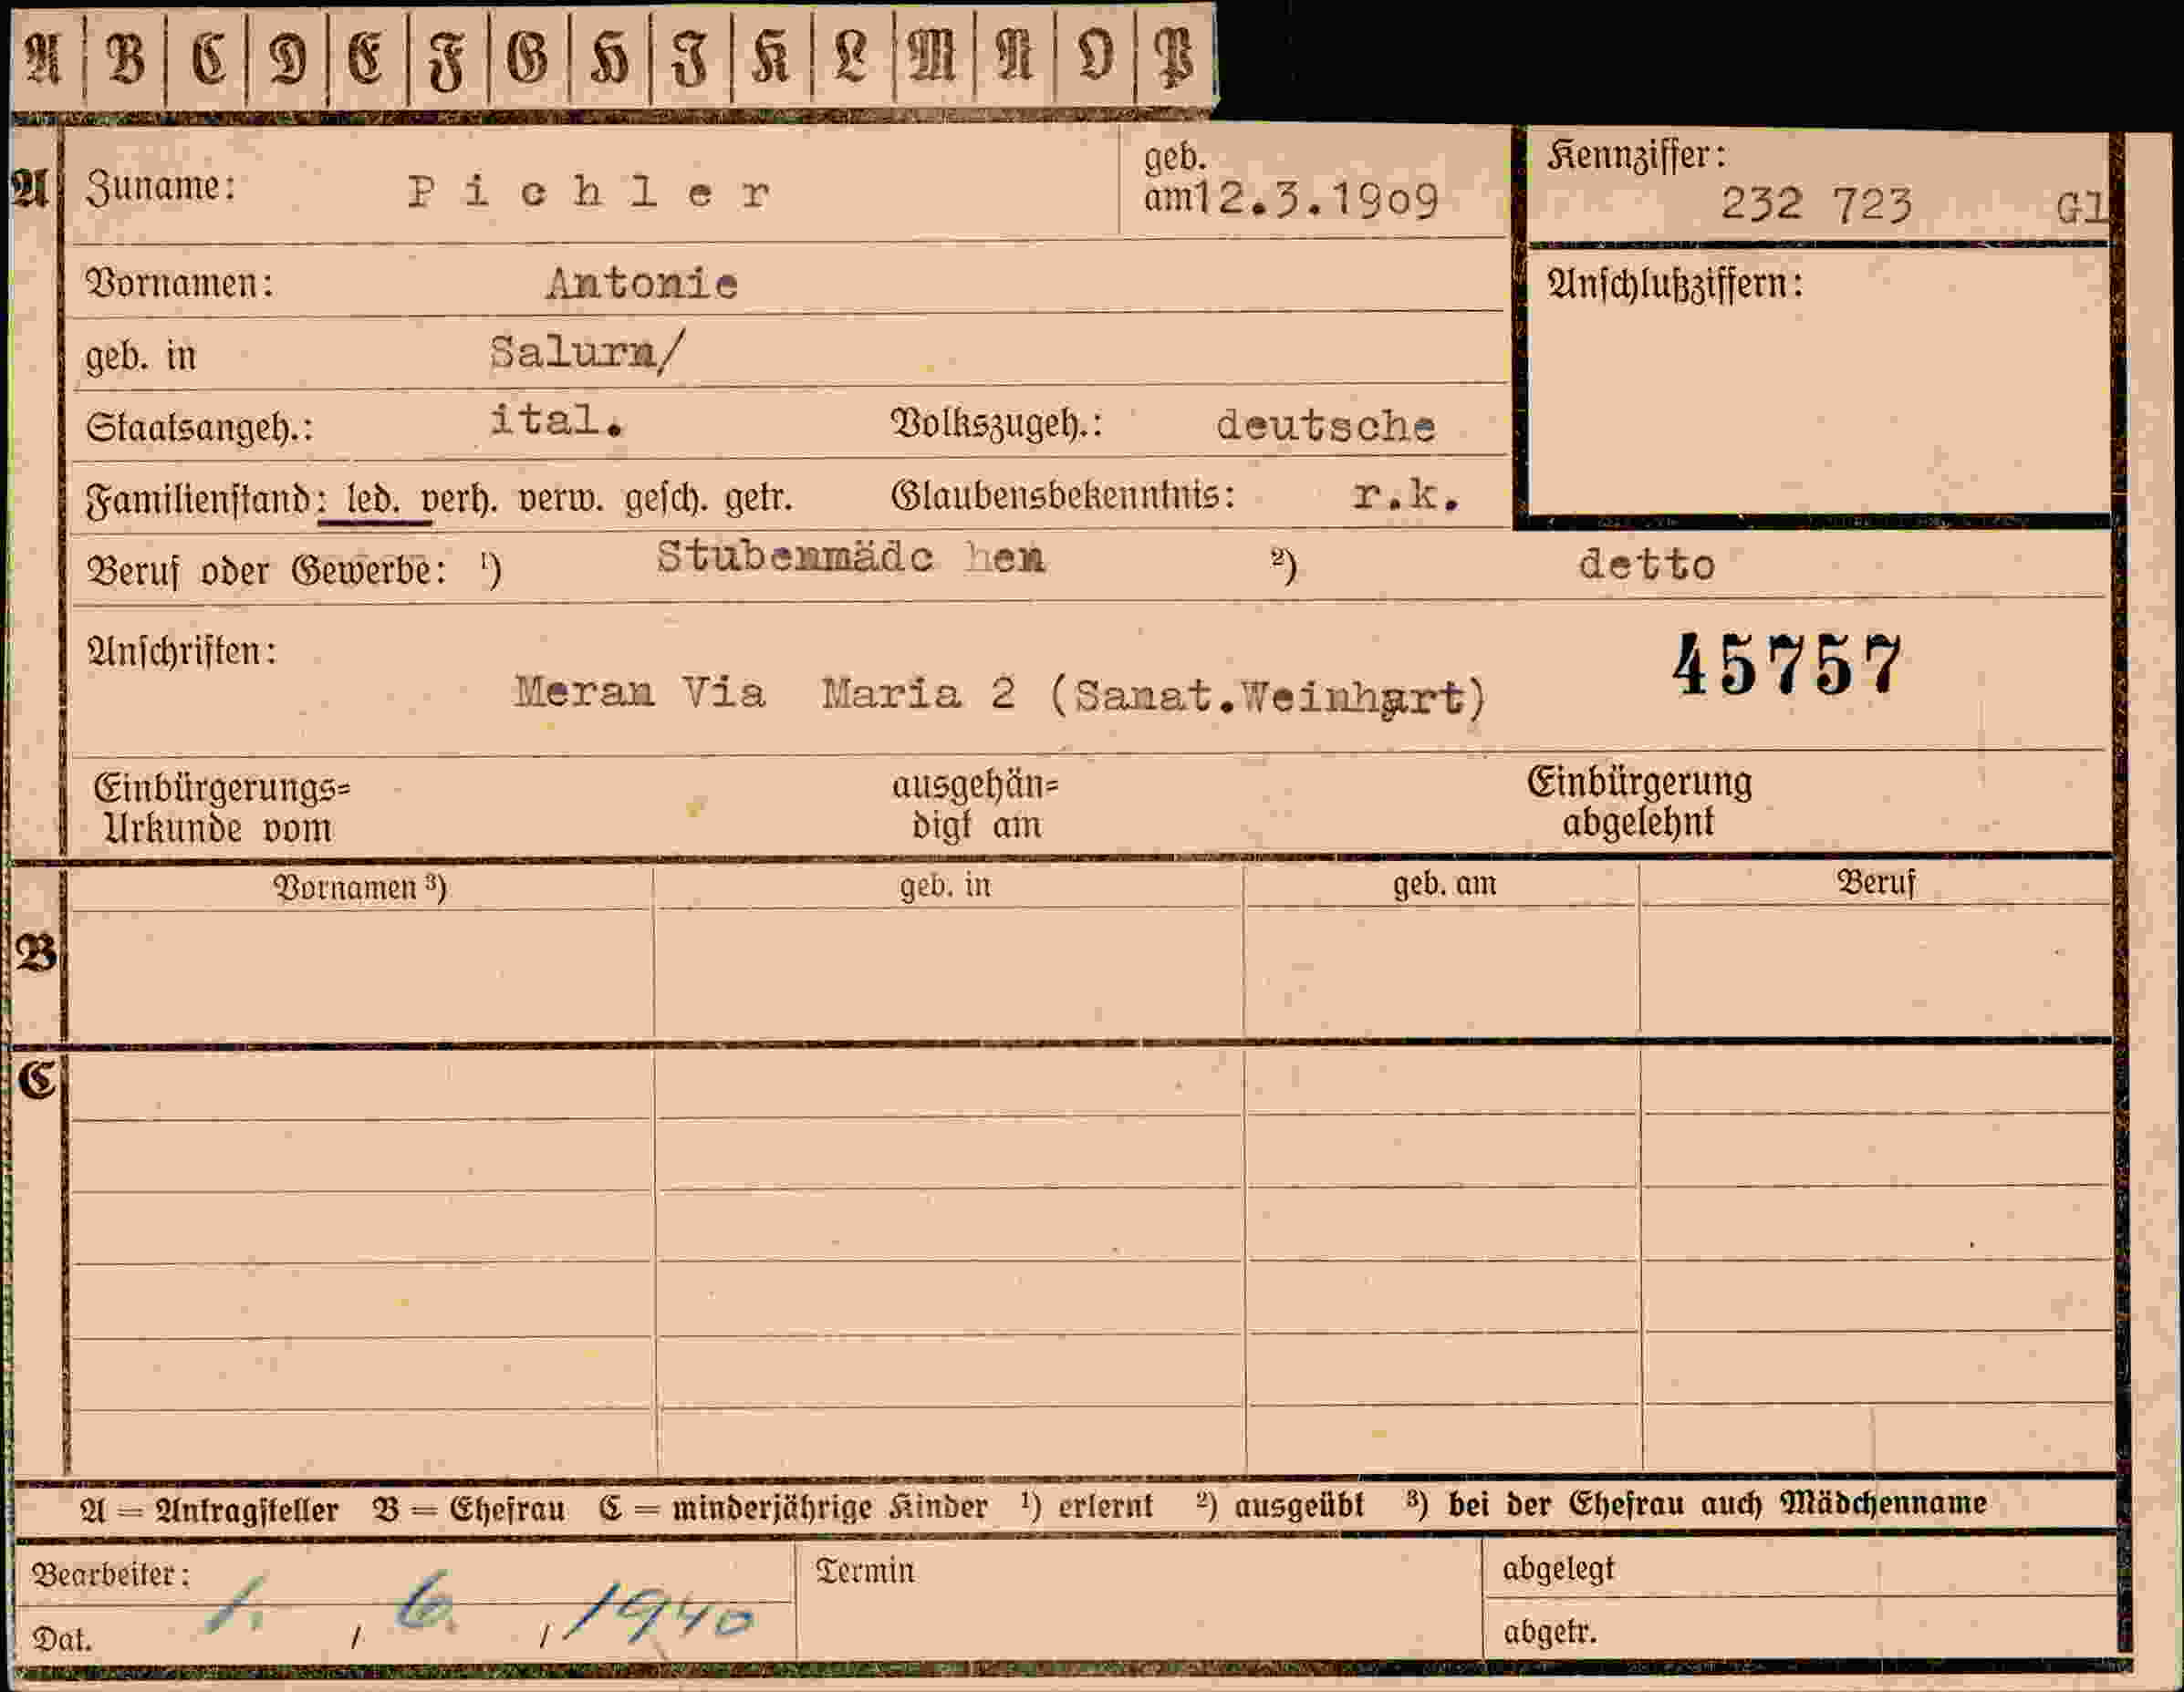 A B C D E F G H I K L M N O P
A Zuname: Pichler geb. am 12.3.1909 Kennziffer: 232 723 Gl
Vornamen: Antonie Anschlußziffern:
geb. in Salurn/
Staatsangeh.: ital. Volkszugeh.: deutsche
Familienstand: led. verh. verw. gesch. getr. Glaubensbekenntnis: r.k.
Beruf oder Gewerbe: ¹) Stubenmädc hen ²) detto
Anschriften: 45757
Meran Via Maria 2 (Sanat.Weinhart)
Einbürgerungs= ausgehän= Einbürgerung
Urkunde vom digt am abgelehnt
Vornamen ³) geb. in geb. am Beruf
B
C
A = Antragsteller B = Ehefrau C = minderjährige Kinder ¹) erlernt ²) ausgeübt ³) bei der Ehefrau auch Mädchenname
Bearbeiter: Termin abgelegt
Dat. 1. / 6. / 1940 abgetr.